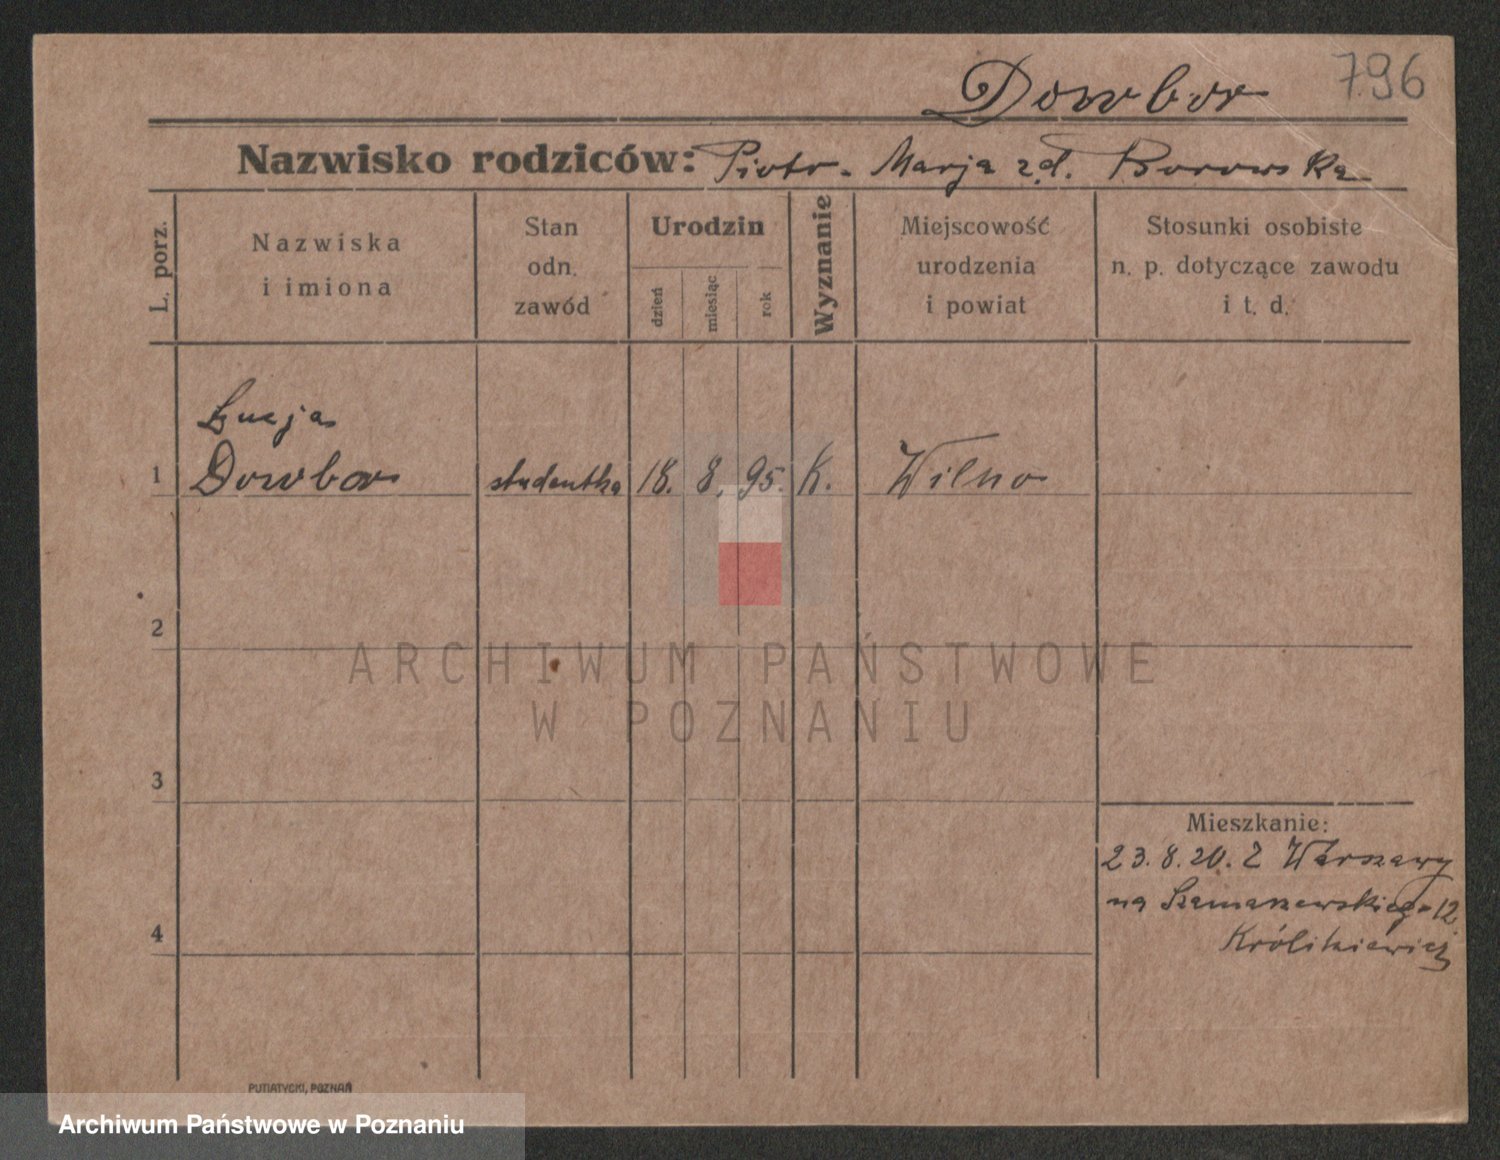 796
Dowbor
Nazwisko rodziców: Piotr - Marja zd. Borowska
L. porz.
Nazwiska
i imiona
Stan
odn.
zawód
Urodzin
dzień
miesiąc
rok
Wyznanie
Miejscowość
urodzenia
i powiat
Stosunki osobiste
n. p. dotyczące zawodu
i t. d.
Łucja
1 Dowbor studentka 18. 8. 95. K. Wilno
2
ARCHIWUM PAŃSTWOWE
W POZNANIU
3
Mieszkanie:
23.8.20. Z Warszawy
na 12
Królikiewicz
4
PUTIATYCKI, POZNAŃ
Archiwum Państwowe w Poznaniu